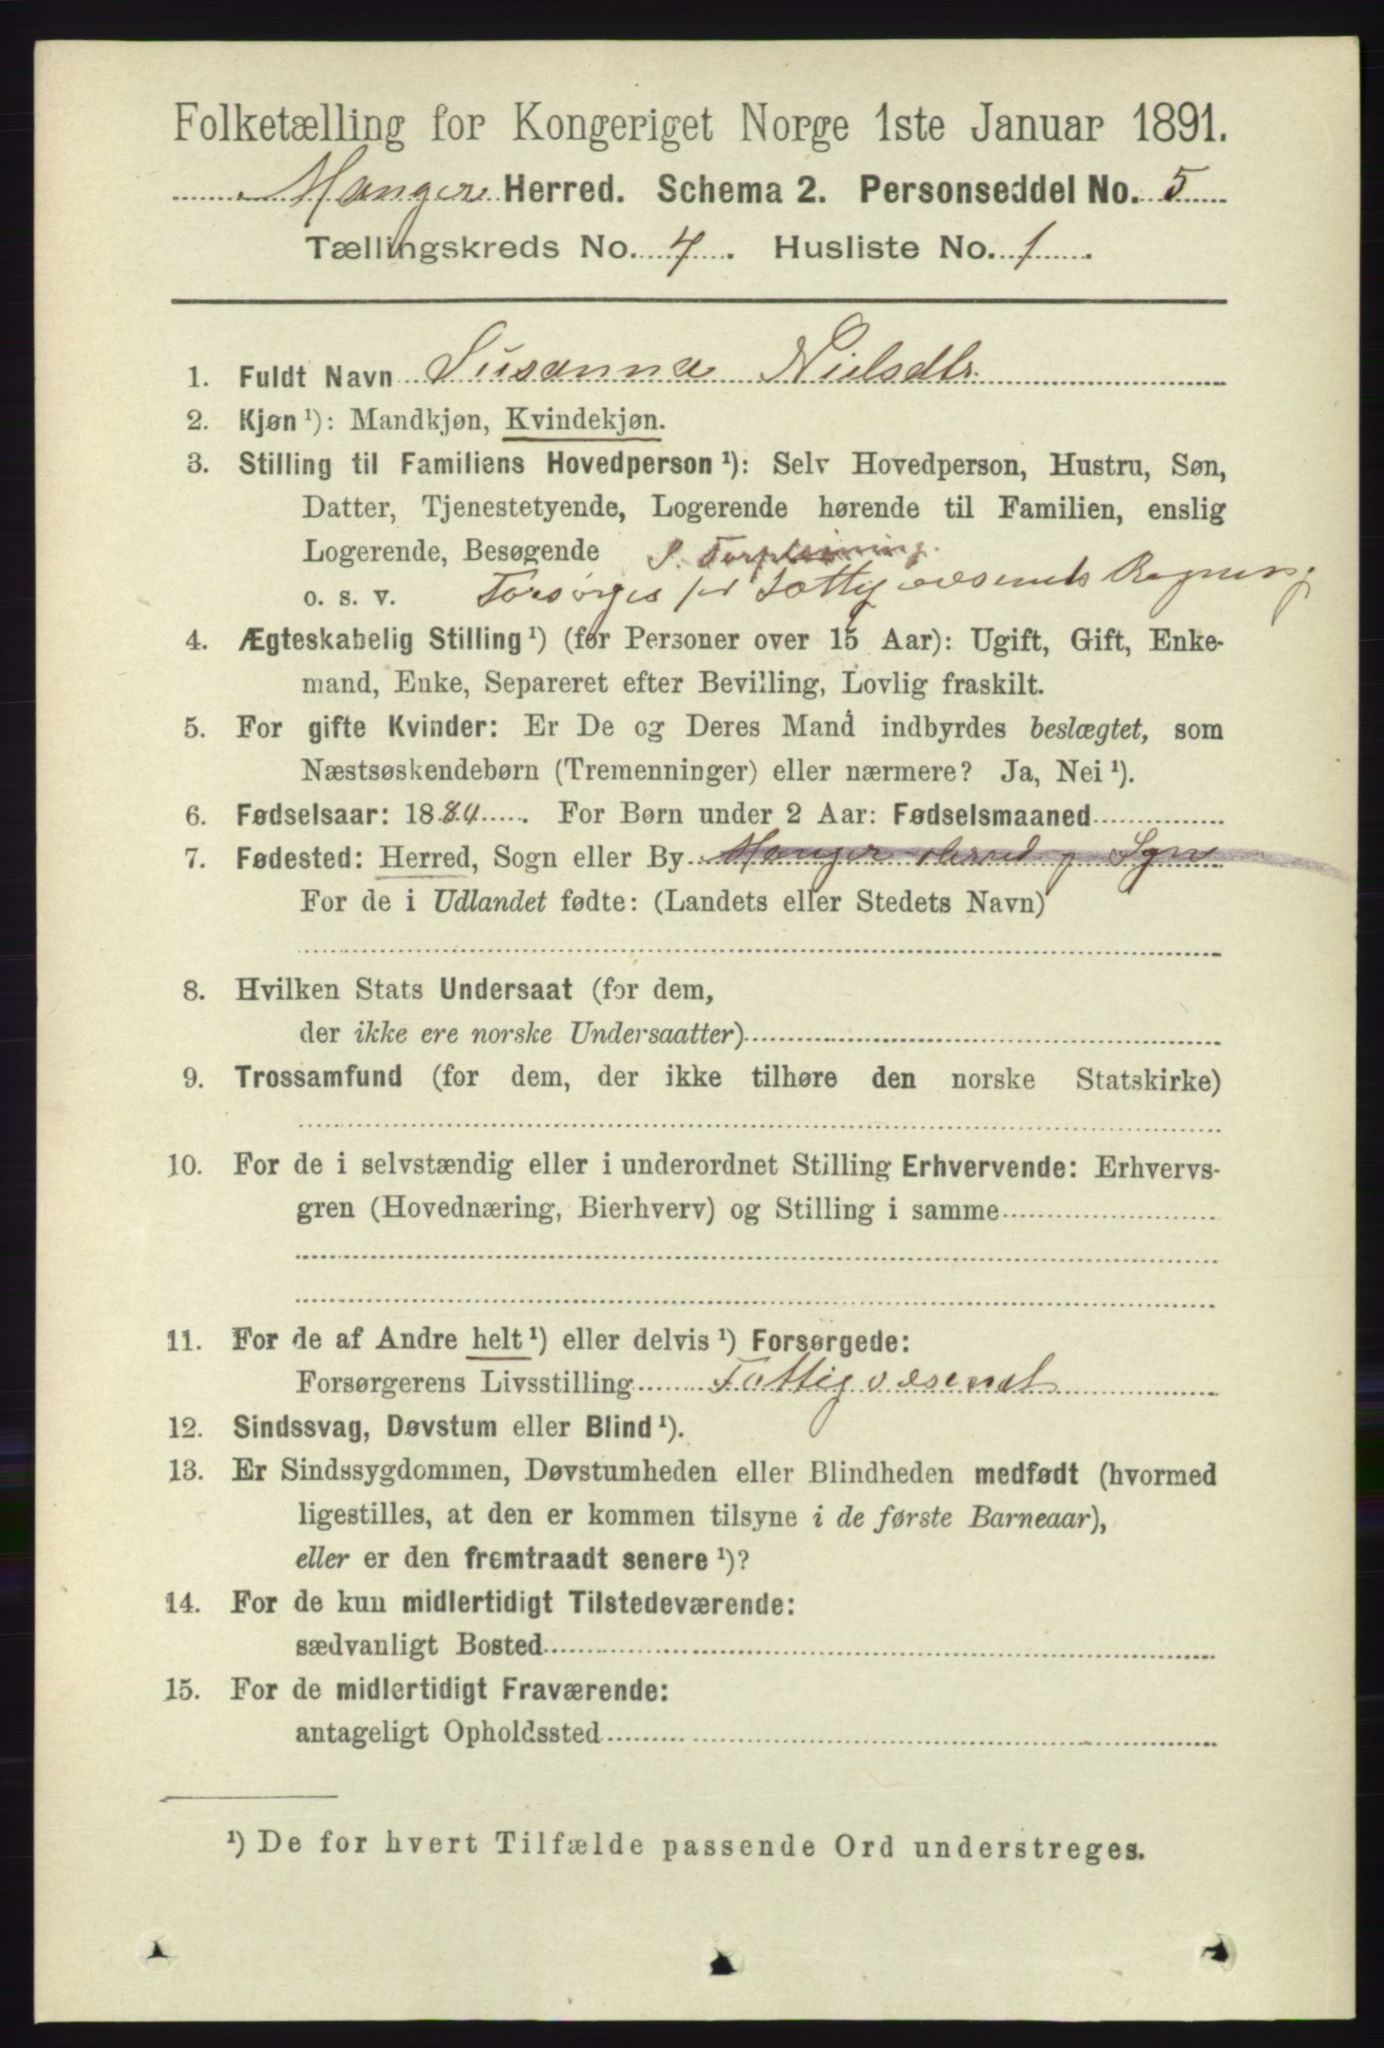 Folketælling for Kongeriget Norge 1ste Januar 1891.
Manger Herred. Schema 2. Personseddel No. 5
Tællingskreds No. 4. Husliste No. 1.
1. Fuldt Navn Susanna Nielsdtr.
2. Kjøn ¹): Mandkjøn, Kvindekjøn.
3. Stilling til Familiens Hovedperson ¹): Selv Hovedperson, Hustru, Søn,
Datter, Tjenestetyende, Logerende hørende til Familien, enslig
Logerende, Besøgende I. Forpleining.
o. s. v. Forsørges for Fattigvæsenets Regning
4. Ægteskabelig Stilling ¹) (for Personer over 15 Aar): Ugift, Gift, Enke-
mand, Enke, Separeret efter Bevilling, Lovlig fraskilt.
5. For gifte Kvinder: Er De og Deres Mand indbyrdes beslægtet, som
Næstsøskendebørn (Tremenninger) eller nærmere? Ja, Nei ¹).
6. Fødselsaar: 1884. For Børn under 2 Aar: Fødselsmaaned
7. Fødested: Herred, Sogn eller By Manger Herred Sgn
For de i Udlandet fødte: (Landets eller Stedets Navn)
8. Hvilken Stats Undersaat (for dem,
der ikke ere norske Undersaatter)
9. Trossamfund (for dem, der ikke tilhøre den norske Statskirke)
10. For de i selvstændig eller i underordnet Stilling Erhvervende: Erhvervs-
gren (Hovednæring, Bierhverv) og Stilling i samme
11. For de af Andre helt ¹) eller delvis ¹) Forsørgede:
Forsørgerens Livsstilling Fattigvæsenet
12. Sindssvag, Døvstum eller Blind ¹).
13. Er Sindssygdommen, Døvstumheden eller Blindheden medfødt (hvormed
ligestilles, at den er kommen tilsyne i de første Barneaar),
eller er den fremtraadt senere ¹)?
14. For de kun midlertidigt Tilstedeværende:
sædvanligt Bosted
15. For de midlertidigt Fraværende:
antageligt Opholdssted
¹) De for hvert Tilfælde passende Ord understreges.